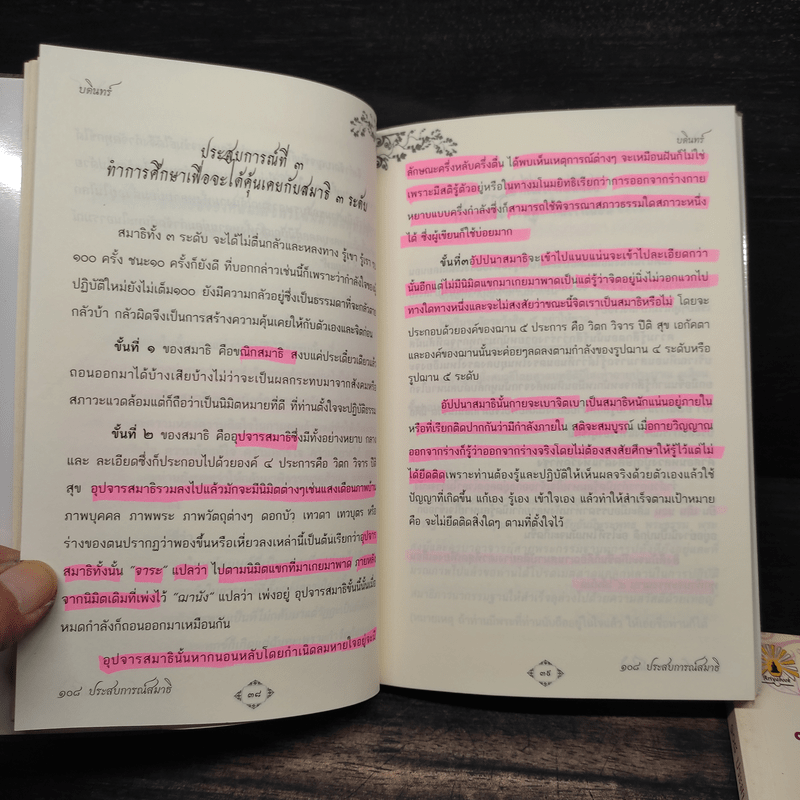 บดินทร์
ประสบการณ์ที่ ๓
ทำการศึกษาเพื่อจะได้คุ้นเคยกับสมาธิ ๓ ระดับ
สมาธิทั้ง ๓ ระดับ จะได้ไม่ตื่นกลัวและหลงทาง รู้เขา รู้เรา
๑๐๐ ครั้ง ชนะ๑๐ ครั้งก็ยังดี ที่บอกกล่าวเช่นนี้ก็เพราะว่ากำลังใจของผู้
ปฏิบัติใหม่ยังไม่เต็ม๑๐๐ ยังมีความกลัวอยู่ซึ่งเป็นธรรมดาที่จะกลัวตาย
กลัวบ้า กลัวผิดจึงเป็นการสร้างความคุ้นเคยให้กับตัวเองและจิตก่อน
ขั้นที่ ๑ ของสมาธิ คือขณิกสมาธิ สงบแค่ประเดี๋ยวเดียวแล้ว
ถอนออกมาได้บ้างเสียบ้างไม่ว่าจะเป็นผลกระทบมาจากสังคมหรือ
สภาวะแวดล้อมแต่ก็ถือว่าเป็นนิมิตหมายที่ดี ที่ท่านตั้งใจจะปฏิบัติธรรม
ขั้นที่ ๒ ของสมาธิ คืออุปจารสมาธิซึ่งมีทั้งอย่างหยาบ กลาง
และ ละเอียดซึ่งก็ประกอบไปด้วยองค์ ๔ ประการคือ วิตก วิจาร ปีติ
สุข อุปจารสมาธิรวมลงไปแล้วมักจะมีนิมิตต่างๆเช่นแสงเดือนภาพบ้าน
ภาพบุคคล ภาพพระ ภาพวัตถุต่างๆ ดอกบัว เทวดา เทวบุตร หรือ
ร่างของตนปรากฏว่าพองขึ้นหรือเหี่ยวลงเหล่านี้เป็นต้นเรียกว่าอุปจาร
สมาธิทั้งนั้น "จาระ" แปลว่า ไปตามนิมิตแขกที่มาเกยมาพาด
จากนิมิตเดิมที่เพ่งไว้ "ฌานัง" แปลว่า เพ่งอยู่ อุปจารสมาธิขั้นนี้นั้นเมื่อ
หมดกำลังก็ถอนออกมาเหมือนกัน
อุปจารสมาธินั้นหากนอนหลับโดยกำเนิดลมหายใจอยู่จะมี
๑๐๘ ประสบการณ์สมาธิ
๓๘
บดินทร์
ลักษณะครึ่งหลับครึ่งตื่น ได้พบเห็นเหตุการณ์ต่างๆ จะเหมือนฝันก็ไม่ใช่
เพราะมีสติรู้ตัวอยู่หรือในทางมโนมยิทธิเรียกว่าการออกจากร่างกาย
หยาบแบบครึ่งกำลังซึ่งก็สามารถใช้พิจารณาสภาวธรรมใดสภาวะหนึ่ง
ได้ ซึ่งผู้เขียนก็ใช้บ่อยมาก
ขั้นที่๓อัปปนาสมาธิจะเข้าไปแนบแน่นจะเข้าไปละเอียดกว่า
นั้นอีกแต่ไม่มีนิมิตแขกมาเกยมาพาดเป็นแต่รู้ว่าจิตอยู่นิ่งไม่วอกแวกไป
ทางใดทางหนึ่งและจะไม่สงสัยว่าขณะนี้จิตเราเป็นสมาธิหรือไม่ โดยจะ
ประกอบด้วยองค์ของฌาน ๕ ประการ คือ วิตก วิจาร ปีติ สุข เอกัคตา
และองค์ของฌานนั้นจะค่อยๆลดลงตามกำลังของรูปฌาน ๔ ระดับหรือ
รูปฌาน ๕ ระดับ
อัปปนาสมาธินั้นกายจะเบาจิตเบาเป็นสมาธิหนักแน่นอยู่ภายใน
หรือที่เรียกติดปากกันว่ามีกำลังภายใน สติจะสมบูรณ์ เมื่อกายวิญญาณ
ออกจากร่างก็รู้ว่าออกจากร่างจริงโดยไม่ต้องสงสัยศึกษาให้รู้ไว้แต่ไม่
ได้ยึดติดเพราะท่านต้องรู้และปฏิบัติให้เห็นผลจริงด้วยตัวเองแล้วใช้
ปัญญาที่เกิดขึ้น แก้เอง รู้เอง เข้าใจเอง แล้วทำให้สำเร็จตามเป้าหมาย
คือ จะไม่ยึดติดสิ่งใดๆ ตามที่ตั้งใจไว้
๓๙
๑๐๘ ประสบการณ์สมาธิ